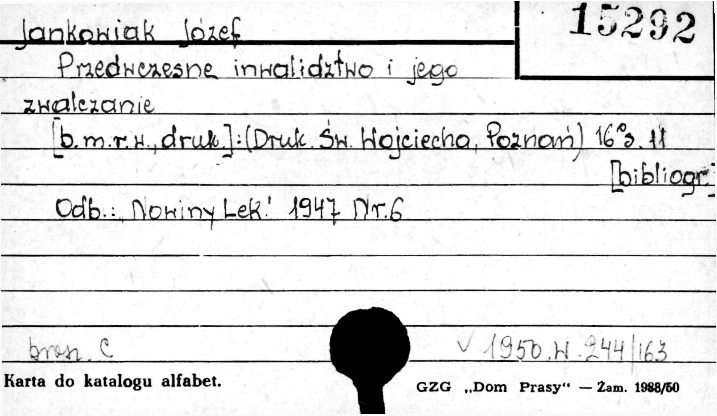 Jankowiak Józef
15292
Przedwczesne inwalidztwo i jego
zwalczanie
[b.m.r.w., druk.]:(Druk. Św. Wojciecha, Poznań) 16° s. 11
[bibliogr.]
Odb.: „Nowiny Lek.' 1947 Nr. 6
brosz. C
V 1950.W.244/163
Karta do katalogu alfabet.
GZG „Dom Prasy“ — Zam. 1988/50